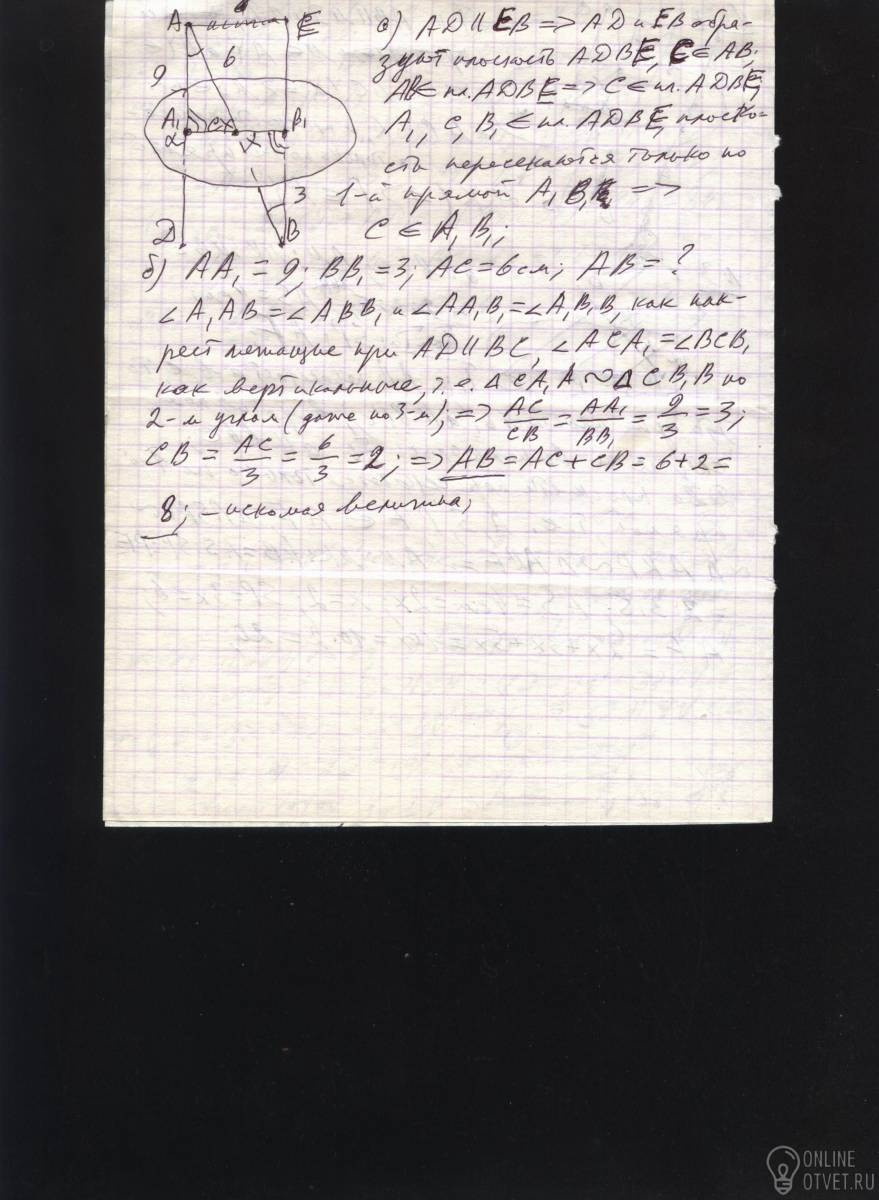 A E
а) AD ∥ EB => AD и EB обра-
6
зуют плоскость ADBE, C ∈ AB;
9
AB ∈ пл. ADBE => C ∈ пл. ADBE;
A₁ C X B₁
A₁, C, B₁ ∈ пл. ADBE, плоско-
α X
сти пересекаются только по
3
1-й прямой A₁B₁ =>
D B
C ∈ A₁B₁;
б) AA₁ = 9; BB₁ = 3; AC = 6 см; AB = ?
∠A₁AB = ∠ABB₁ и ∠AA₁B₁ = ∠A₁B₁B, как нак-
рест лежащие при AD ∥ BC, ∠ACA₁ = ∠BCB₁
как вертикальные, т.е. Δ CA₁A ~ Δ CB₁B по
2-м углам (даже по 3-м); => AC/CB = AA₁/BB₁ = 9/3 = 3;
CB = AC/3 = 6/3 = 2; => AB = AC + CB = 6 + 2 =
8; – искомая величина;
ONLINE
OTVET.RU